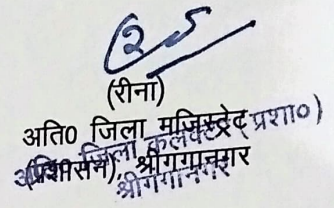 (रीना)
अति0 जिला मजिस्ट्रेट
(प्रशासन), श्रीगंगानगर
अति० जिला कलक्टर (प्रशा०)
श्रीगंगानगर